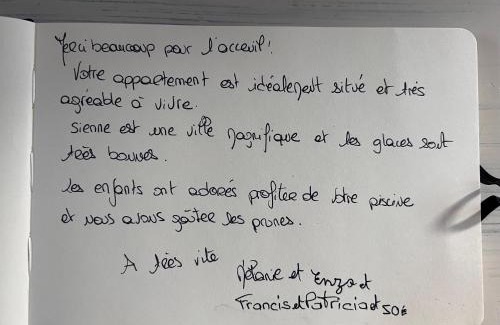 Merci beaucoup pour l'acceuil!
Votre appartement est idéalement situé et très
agréable à vivre.
Sienne est une ville magnifique et les glaces sont
très bonnes.
Les enfants ont adorés profiter de votre piscine
et nous avons goûter les prunes.
A très vite
Mélanie et Enzo et
Francis et Patricia et SOé